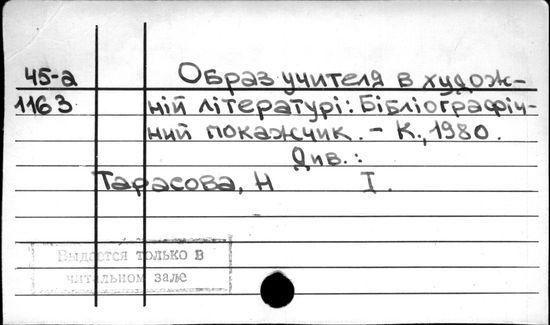 45-а Образ учителя в худож-
1163 ній літературі: Бібліографіч-
ний покажчик. - К., 1980.
Див.:
Тарасова, Н І.
Выдается только в
читальном зале